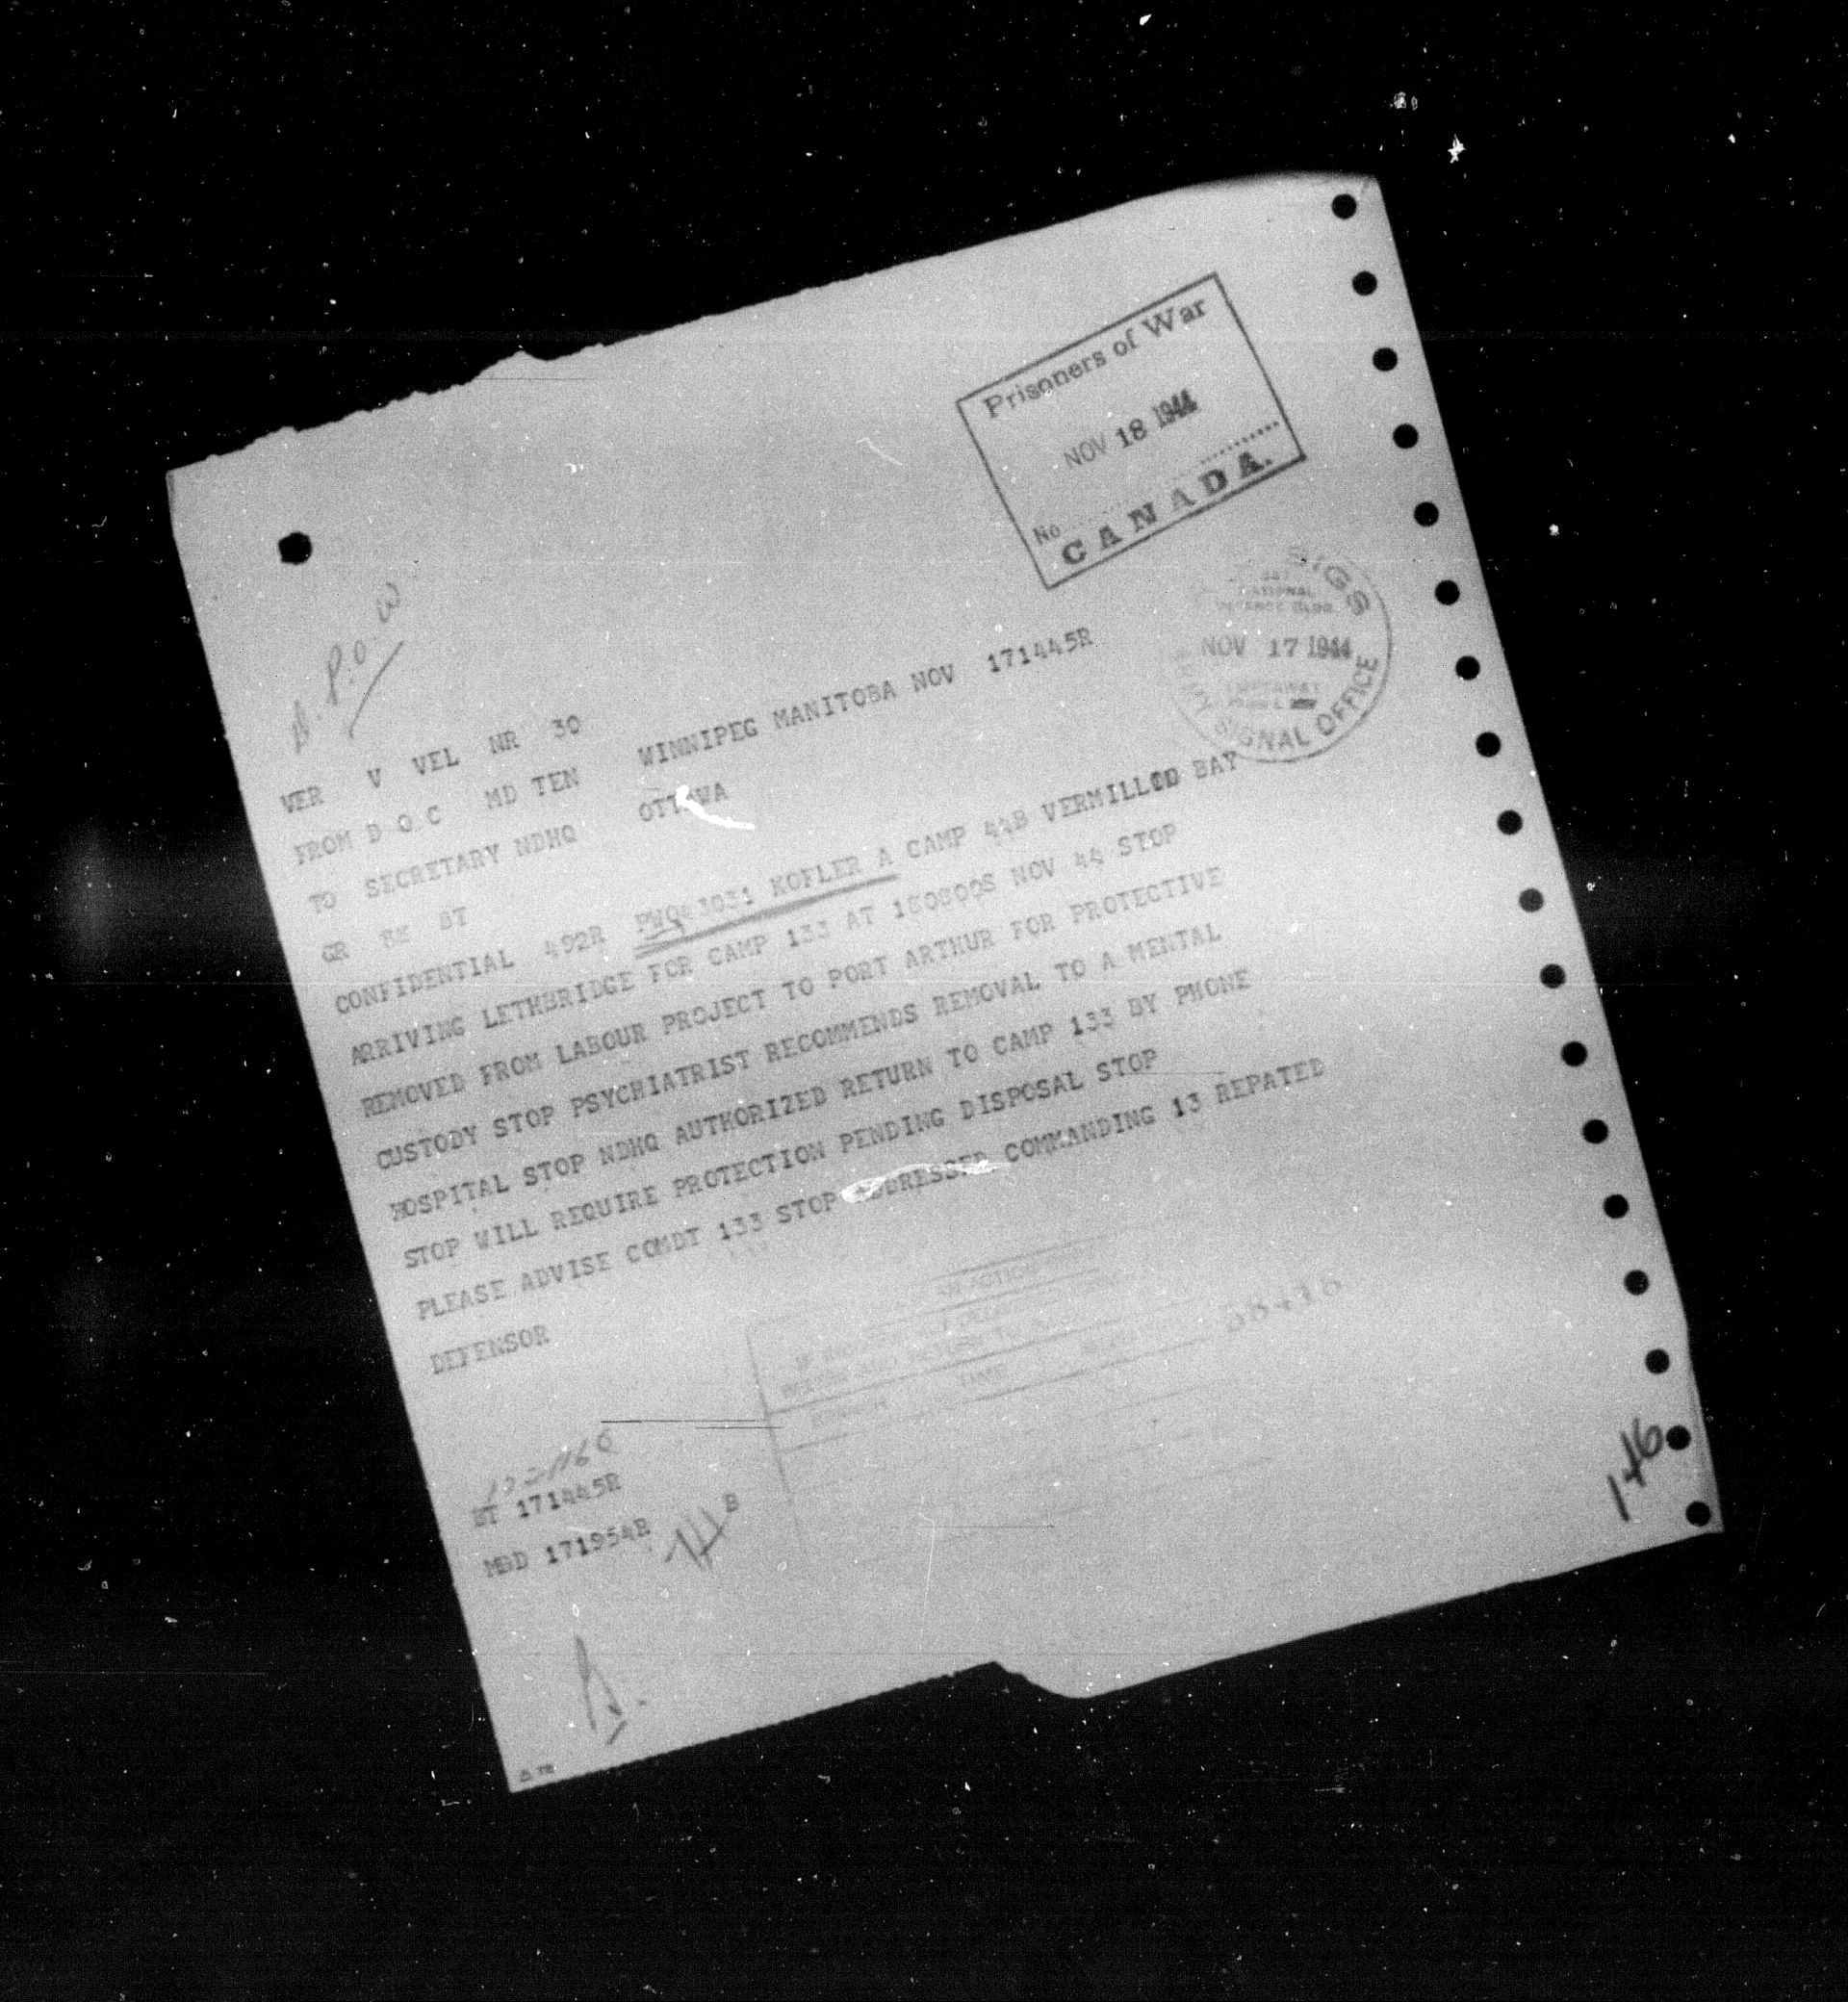 Prisoners of War
NOV 18 1944
No
CANADA.
SIGS
NATIONAL
NOV 17 1944
SIGNAL OFFICE
P.O.W
VER V VEL NR 30
FROM D O C MD TEN WINNIPEG MANITOBA NOV 171445R
TO SECRETARY NDHQ OTTAWA
GR BT
CONFIDENTIAL 492R KOFLER A CAMP 44B VERMILLIO BAY
ARRIVING LETHBRIDGE FOR CAMP 133 AT NOV 44 STOP
REMOVED FROM LABOUR PROJECT TO PORT ARTHUR FOR PROTECTIVE
CUSTODY STOP PSYCHIATRIST RECOMMENDS REMOVAL TO A MENTAL
HOSPITAL STOP NDHQ AUTHORIZED RETURN TO CAMP 133 BY PHONE
STOP WILL REQUIRE PROTECTION PENDING DISPOSAL STOP
PLEASE ADVISE COMDT 133 STOP ADDRESSED COMMANDING 13 REPATED
DEFENSOR
BT 171445R
171954R
B
146